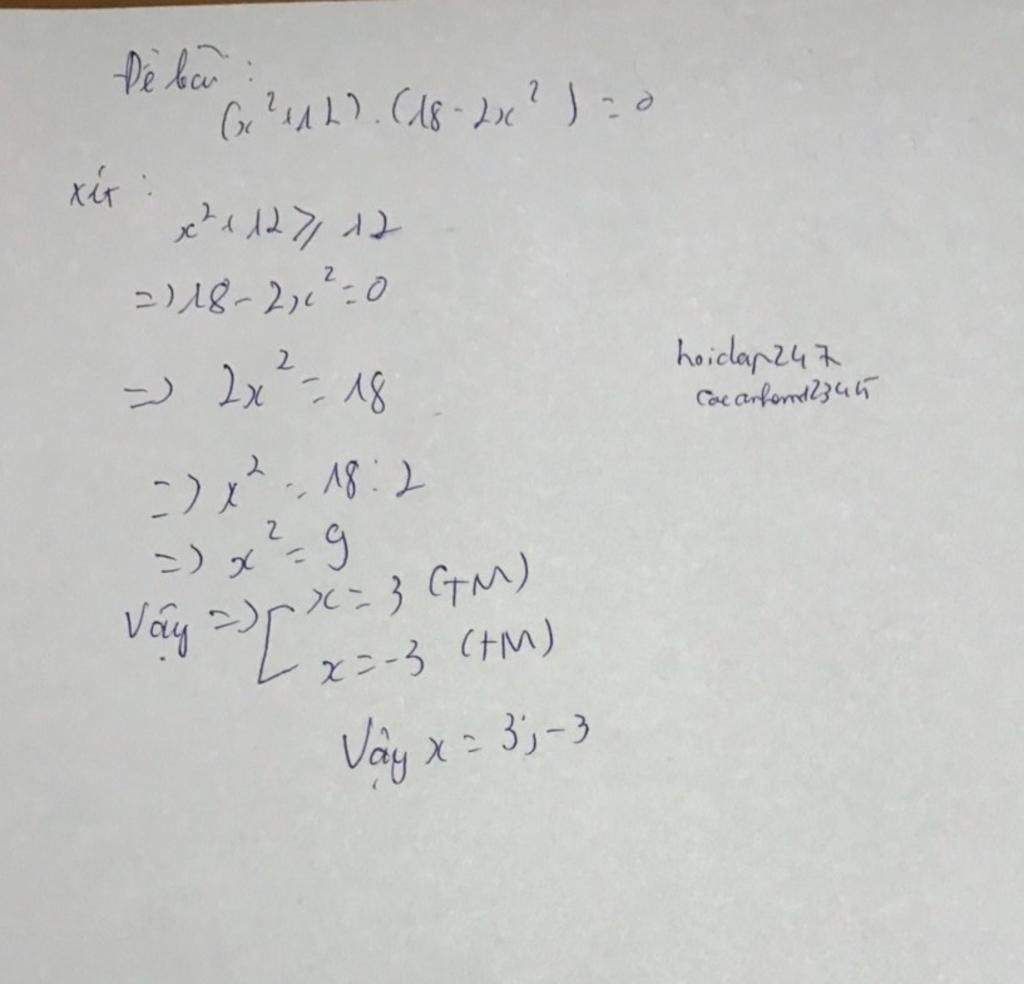 Đề bài :
(x²+12).(18-2x²) = 0
xét :
x²+12 ≥ 12
=> 18 - 2x² = 0
=> 2x² = 18
=> x² = 18 : 2
=> x² = 9
Vậy => [ x = 3 (TM)
x = -3 (TM)
Vậy x = 3 ; -3
hoidap247